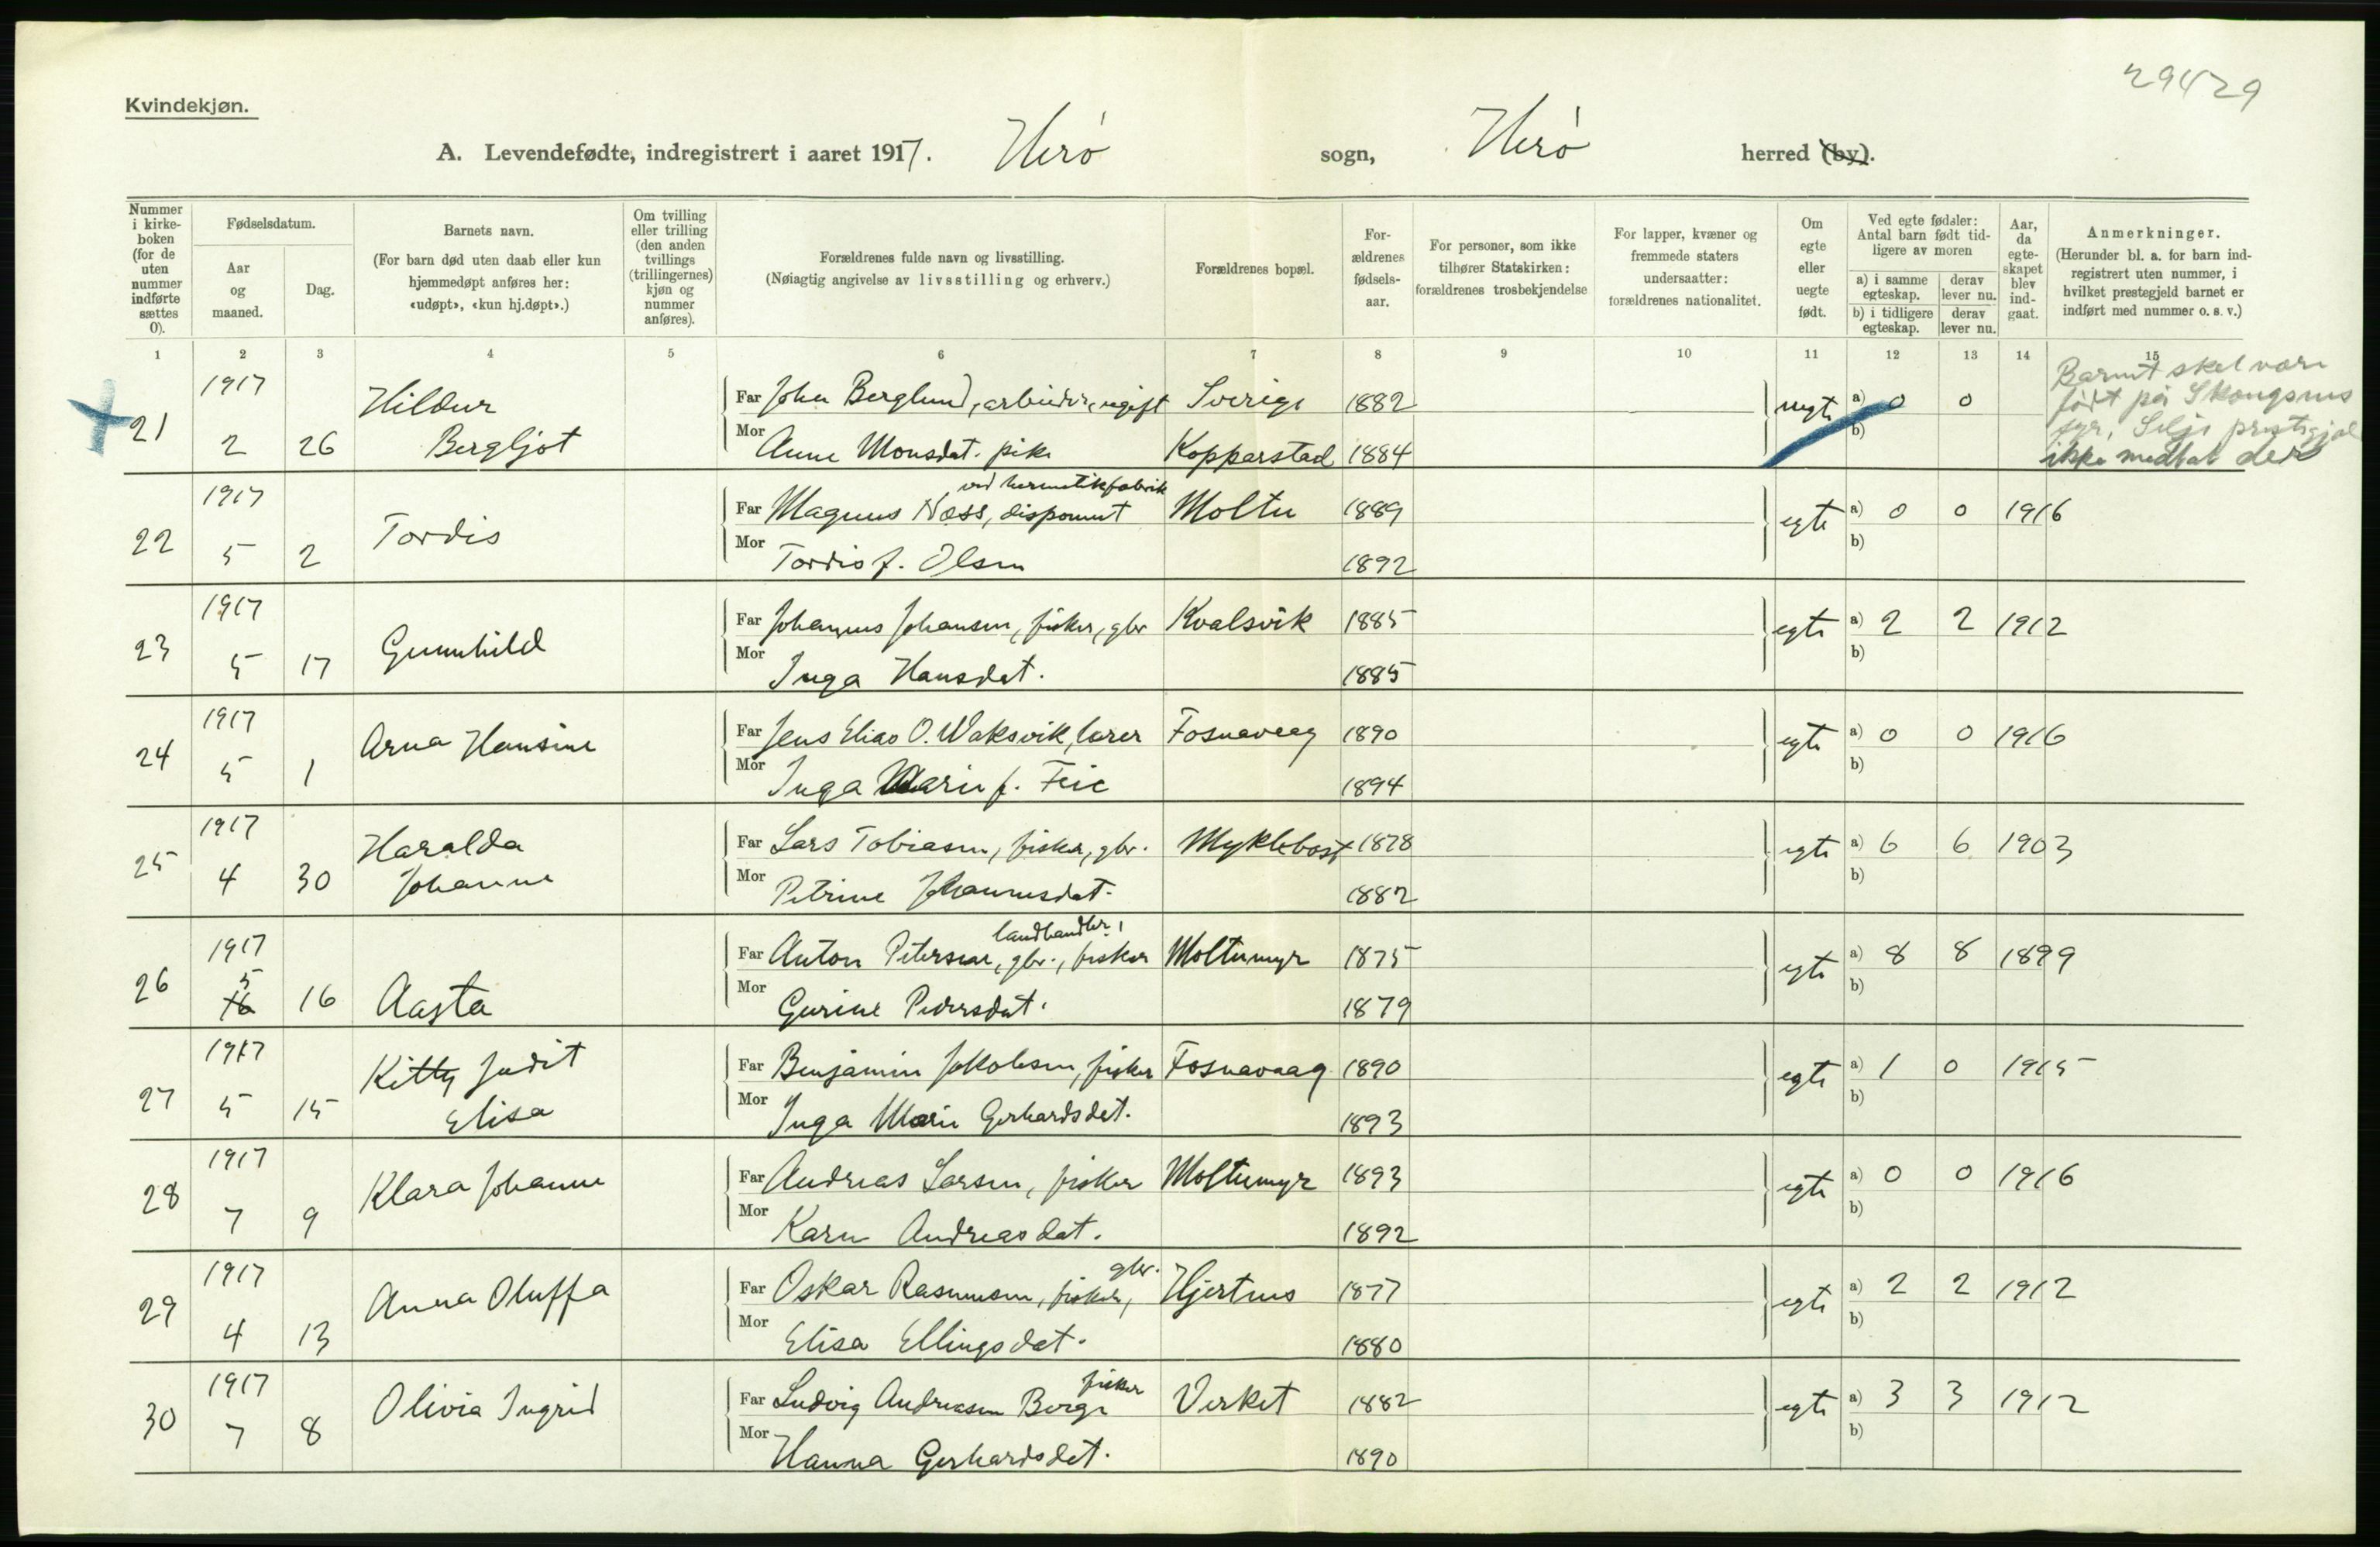 29429
Kvindekjøn.
A. Levendefødte, indregistrert i aaret 1917. Herø sogn, Herø herred (by).
Nummer i kirkeboken (for de uten nummer indførte sættes 0).
Fødselsdatum.
Aar og maaned.
Dag.
Barnets navn.
(For barn død uten daab eller kun hjemmedøpt anføres her: «udøpt», «kun hj.døpt».)
Om tvilling eller trilling (den anden tvillings (trillingernes) kjøn og nummer anføres).
Forældrenes fulde navn og livsstilling.
(Nøiagtig angivelse av livsstilling og erhverv.)
Forældrenes bopæl.
Forældrenes fødselsaar.
For personer, som ikke tilhører Statskirken: forældrenes trosbekjendelse
For lapper, kvæner og fremmede staters undersaatter: forældrenes nationalitet.
Om egte eller uegte født.
Ved egte fødsler: Antal barn født tidligere av moren
a) i samme egteskap. derav lever nu.
b) i tidligere egteskap. derav lever nu.
Aar, da egteskapet blev indgaat.
Anmerkninger.
(Herunder bl. a. for barn indregistrert uten nummer, i hvilket prestegjeld barnet er indført med nummer o. s. v.)
1 2 3 4 5 6 7 8 9 10 11 12 13 14 15
21 1917 2 26 Hildur Bergljot
Far John Berglund, arbeider, ugift Sverige 1882 uegte a) 0 0
Mor Anne Monsdat. pike Kopparstad 1884 b)
Barnet skal være
født på Skongsnes
fyr, Selje prestegjel
ikke medtat der
22 1917 5 2 Tordis
ved hermetikfabrik
Far Magnus Næss, disponent Moltu 1889 egte a) 0 0 1916
Mor Tordis f. Olsen 1892 b)
23 1917 5 17 Gunnhild
Far Johannes Johansen, fisker, gbr Kvalsvik 1885 egte a) 2 2 1912
Mor Inga Hansdat. 1885 b)
24 1917 5 1 Arna Hansine
Far Jens Elias O. Waksvik, lærer Fosnavaag 1890 egte a) 0 0 1916
Mor Inga Marie f. Feie 1894 b)
25 1917 4 30 Haralda Johanne
Far Lars Tobiasen, fisker, gbr. Myklebost 1878 egte a) 6 6 1903
Mor Petrine Johannesdat. 1882 b)
26 1917 5 16 Aasta
landhandler,
Far Anton Petersen, gbr., fisker Moltumyr 1875 egte a) 8 8 1899
Mor Gurine Pedersdat. 1879 b)
27 1917 5 15 Kitty Judit Elisa
Far Benjamin Jakobsen, fisker Fosnavaag 1890 egte a) 1 0 1915
Mor Inga Marie Gerhardsdat. 1893 b)
28 1917 7 9 Klara Johanne
Far Andreas Larsen, fisker Moltumyr 1893 egte a) 0 0 1916
Mor Karen Andreasdat. 1892 b)
29 1917 4 13 Anna Oluffa
gbr.
Far Oskar Rasmusen, fisker, Hjertnes 1877 egte a) 2 2 1912
Mor Elisa Ellingsdat. 1880 b)
30 1917 7 8 Olivia Ingrid
fisker
Far Ludvig Andreasen Berge Verket 1882 egte a) 3 3 1912
Mor Hanna Gerhardsdat. 1890 b)